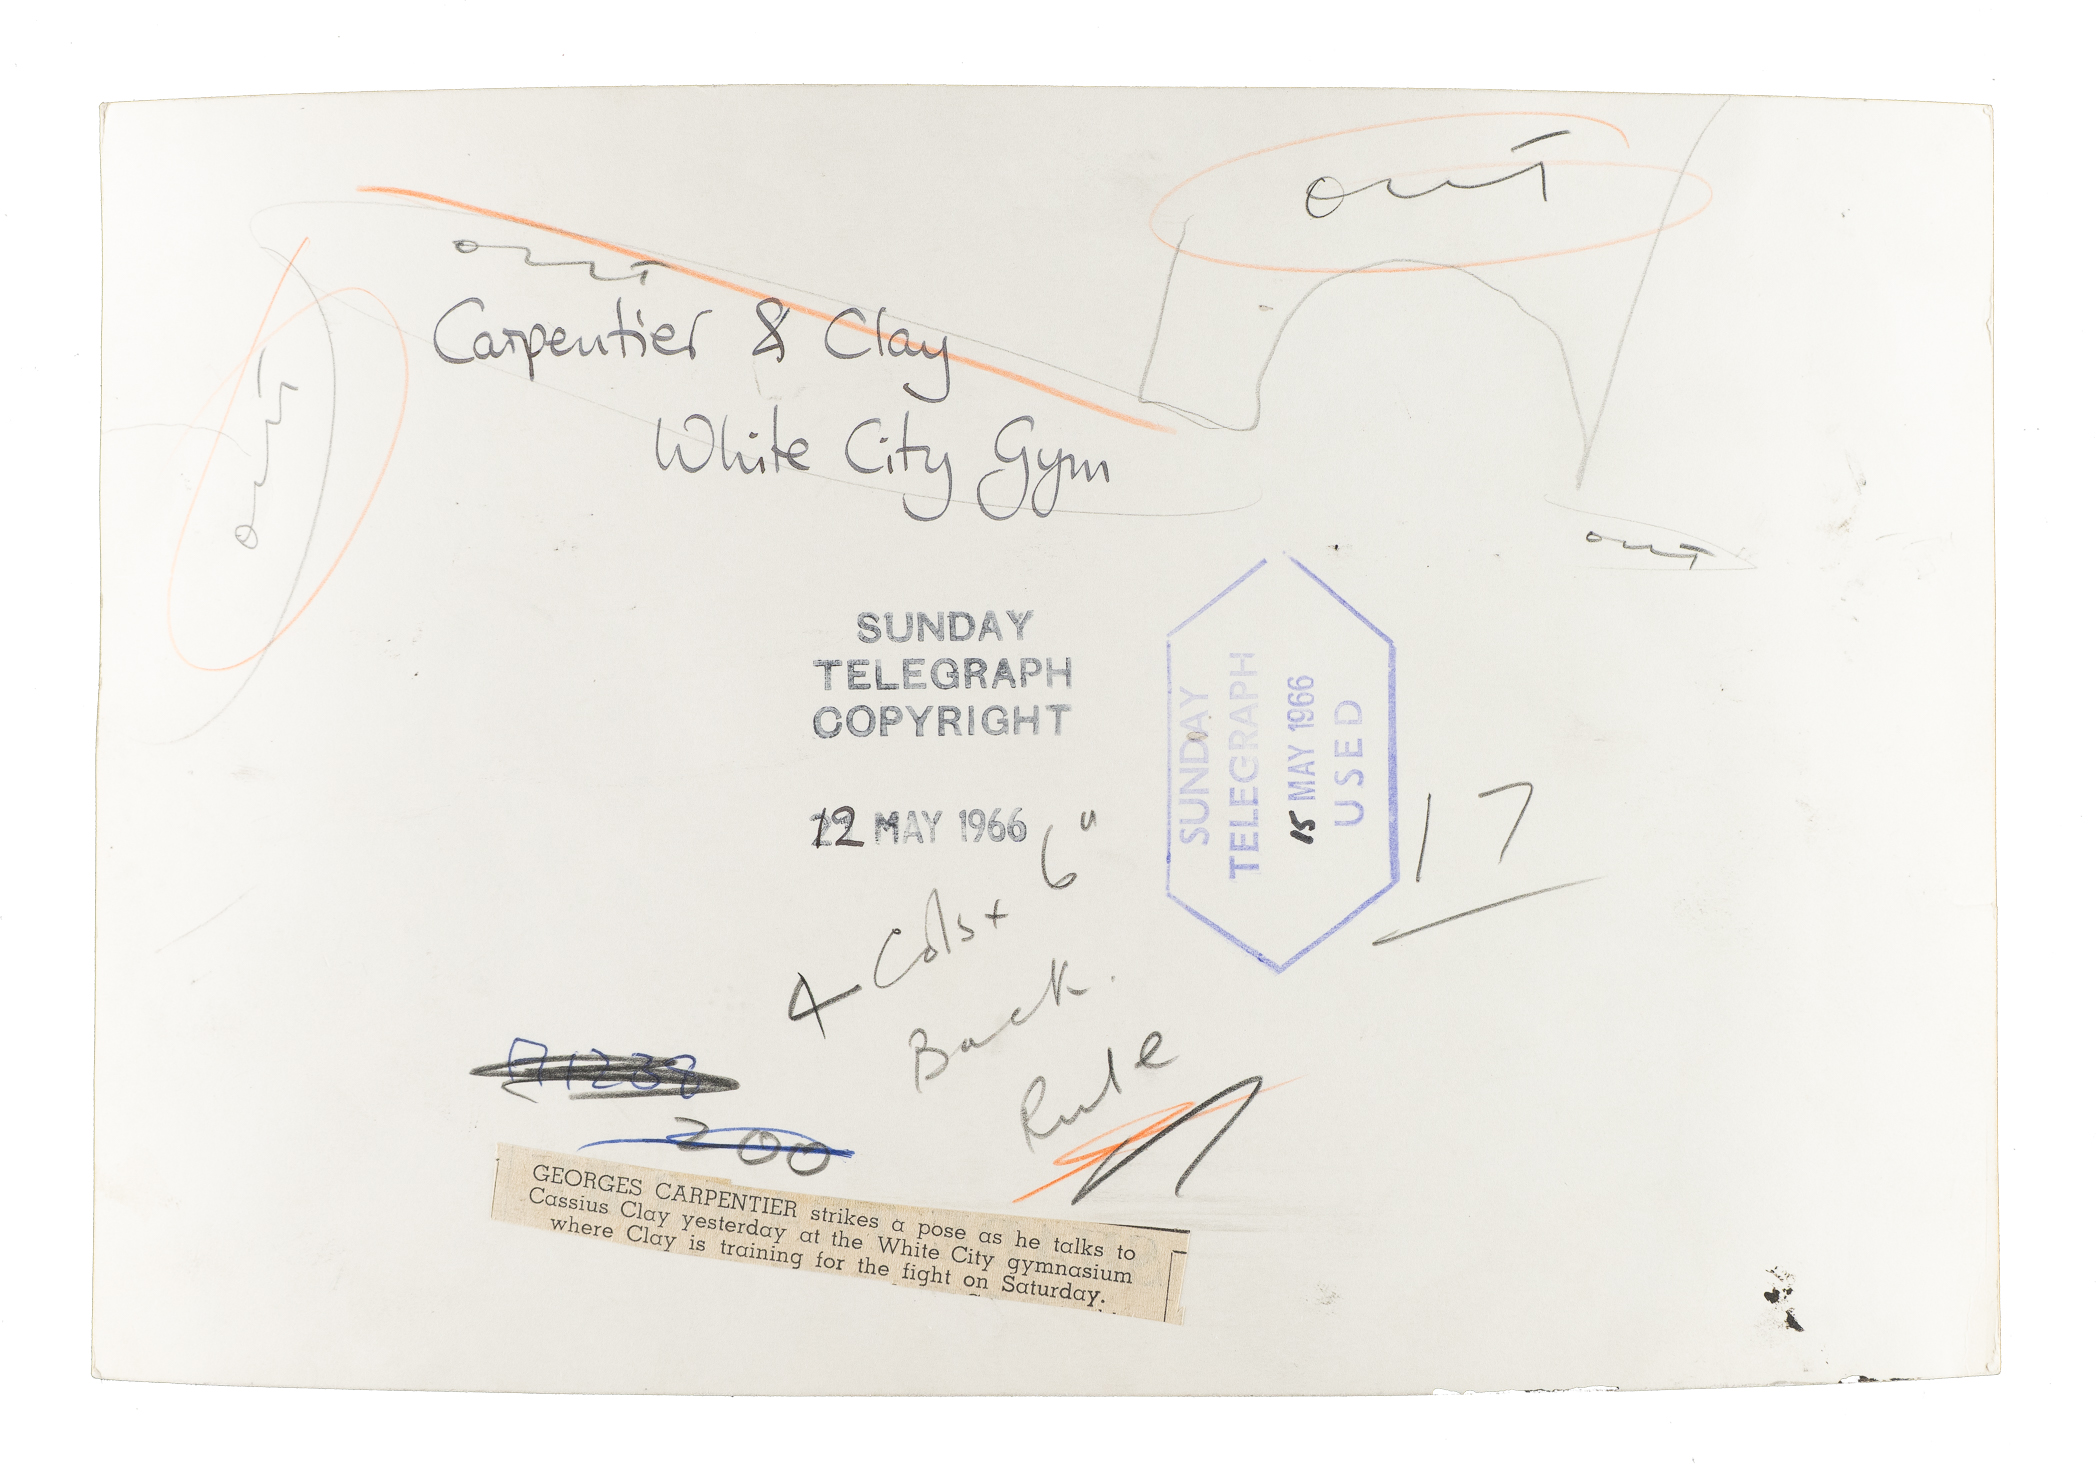 out
out
Carpentier & Clay
White City Gym
out
out
SUNDAY
TELEGRAPH
COPYRIGHT
12 MAY 1966
SUNDAY
TELEGRAPH
15 MAY 1966
USED
17
4 Cols + 6"
Back.
Rule
200
GEORGES CARPENTIER strikes a pose as he talks to
Cassius Clay yesterday at the White City gymnasium
where Clay is training for the fight on Saturday.